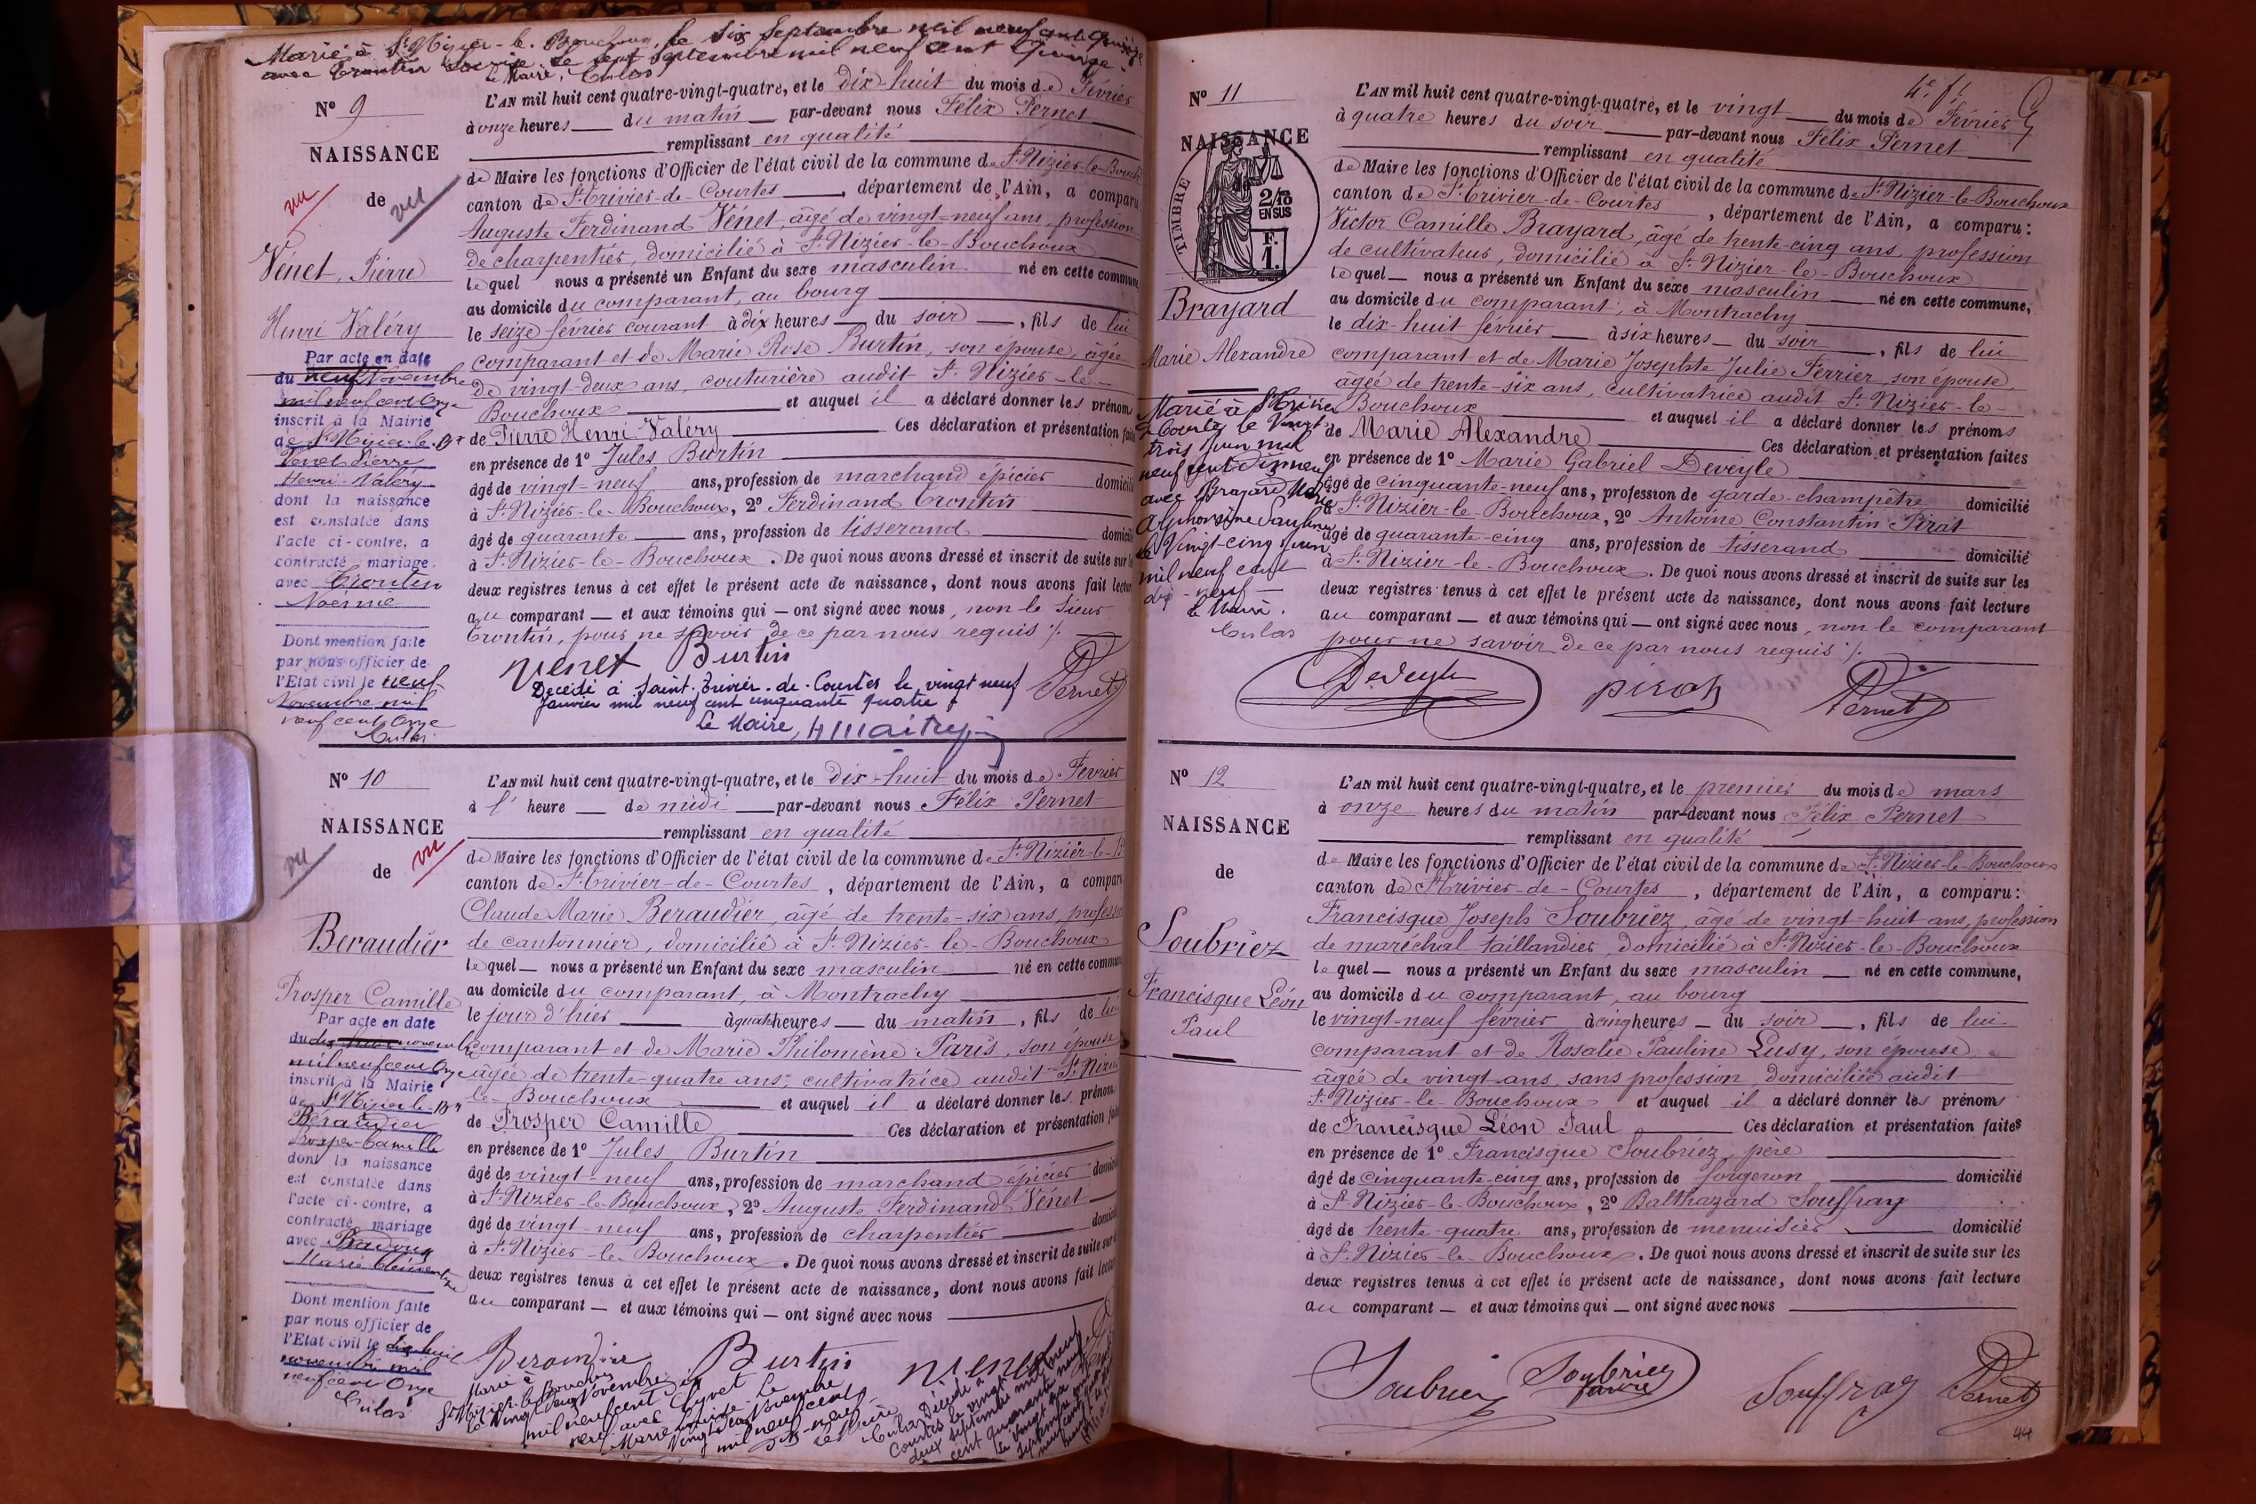 Marié à St Nizier-le-Bouchoux, le six Septembre mil neuf cent quinze
avec Trontin le sept Septembre mil neuf cent quinze.
le Maire, Culas
N° 9
NAISSANCE
de
vu
vu
Vénet, Pierre
Henri Valéry
Par acte en date
du neuf Novembre
mil neuf cent Onze
inscrit à la Mairie
de St Nizier-le-Bx
Venet Pierre
Henri-Valéry
dont la naissance
est constatée dans
l'acte ci-contre, a
contracté mariage
avec Trontin
Noémie
Dont mention faite
par nous officier de
l'Etat civil le neuf
Novembre mil
neuf cent Onze
Culas
L'AN mil huit cent quatre-vingt-quatre, et le dix-huit du mois de Février
à onze heures du matin par-devant nous Félix Pernet
remplissant en qualité
de Maire les fonctions d'Officier de l'état civil de la commune de St Nizier-le-Bouch
canton de St Trivier-de-Courtes, département de l'Ain, a comparu
Auguste Ferdinand Vénet, âgé de vingt-neuf ans, profession
de charpentier, domicilié à St Nizier-le-Bouchoux
lequel nous a présenté un Enfant du sexe masculin né en cette commune
au domicile du comparant, au bourg
le seize février courant à dix heures du soir, fils de lui
comparant et de Marie Rose Burtin, son épouse, âgée
de vingt-deux ans, couturière audit St Nizier-le-
Bouchoux et auquel il a déclaré donner les prénoms
de Pierre Henri Valéry Ces déclaration et présentation faites
en présence de 1° Jules Burtin
âgé de vingt-neuf ans, profession de marchand épicier domicilié
à St Nizier-le-Bouchoux, 2° Ferdinand Trontin
âgé de quarante ans, profession de tisserand domicilié
à St Nizier-le-Bouchoux. De quoi nous avons dressé et inscrit de suite sur les
deux registres tenus à cet effet le présent acte de naissance, dont nous avons fait lecture
au comparant et aux témoins qui ont signé avec nous, non le sieur
Trontin, pour ne savoir de ce par nous requis ./.
Venet Burtin Pernet
Décédé à Saint-Trivier-de-Courtes le vingt neuf
Janvier mil neuf cent cinquante quatre
Le Maire,
N° 10
NAISSANCE
de
vu
vu
Beraudier
Prosper Camille
Par acte en date
du novembre
mil neuf cent Onze
inscrit à la Mairie
de St Nizier-le-Bx
Béraudier
Prosper-Camille
dont la naissance
est constatée dans
l'acte ci-contre, a
contracté mariage
avec
Marie
Dont mention faite
par nous officier de
l'Etat civil le dix huit
novembre mil
neuf cent Onze
Culas
L'AN mil huit cent quatre-vingt-quatre, et le dix-huit du mois de Février
à 1' heure de midi par-devant nous Félix Pernet
remplissant en qualité
de Maire les fonctions d'Officier de l'état civil de la commune de St Nizier-le-B
canton de St Trivier-de-Courtes, département de l'Ain, a comparu
Claude Marie Beraudier, âgé de trente-six ans, profession
de cantonnier, domicilié à St Nizier-le-Bouchoux
lequel nous a présenté un Enfant du sexe masculin né en cette commune
au domicile du comparant, à Montrachy
le jour d'hier à quatre heures du matin, fils de lui
comparant et de Marie Philomène Paris, son épouse
âgée de trente-quatre ans, cultivatrice audit St Nizier
le-Bouchoux et auquel il a déclaré donner les prénoms
de Prosper Camille Ces déclaration et présentation faites
en présence de 1° Jules Burtin
âgé de vingt-neuf ans, profession de marchand épicier domicilié
à St Nizier-le-Bouchoux, 2° Auguste Ferdinand Vénet
âgé de vingt-neuf ans, profession de charpentier domicilié
à St Nizier-le-Bouchoux. De quoi nous avons dressé et inscrit de suite sur les
deux registres tenus à cet effet le présent acte de naissance, dont nous avons fait lecture
au comparant et aux témoins qui ont signé avec nous
Beraudier Burtin Venet
Marié à
St Nizier-le-Bouchoux
le Vingt deux Novembre
mil neuf cent dix
neuf avec
Marie Louise. Le
Vingt Novembre
mil neuf cent
dix-neuf
Le Maire
Culas
Décédé à
Courtes le vingt
deux septembre mil neuf
cent quarante neuf
le vingt
septembre
N° 11
4e ft
NAISSANCE
de
TIMBRE
2/10
EN SUS
F.
1.
Brayard
Marie Alexandre
Marié à St Trivier
de Courtes le Vingt
trois Juin mil
neuf cent dix neuf
avec Brayard Marie
Alphonsine
le Vingt-cinq Juin
mil neuf cent
dix-neuf
Le Maire.
Culas
L'AN mil huit cent quatre-vingt-quatre, et le vingt du mois de Février
à quatre heures du soir par-devant nous Félix Pernet
remplissant en qualité
de Maire les fonctions d'Officier de l'état civil de la commune de St Nizier-le-Bouchoux
canton de St Trivier-de-Courtes, département de l'Ain, a comparu:
Victor Camille Brayard, âgé de trente-cinq ans, profession
de cultivateur, domicilié à St Nizier-le-Bouchoux
lequel nous a présenté un Enfant du sexe masculin né en cette commune,
au domicile du comparant, à Montrachy
le dix-huit février à six heures du soir, fils de lui
comparant et de Marie Josephte Julie Ferrier, son épouse,
âgée de trente-six ans, cultivatrice audit St Nizier-le-
Bouchoux et auquel il a déclaré donner les prénoms
de Marie Alexandre Ces déclaration et présentation faites
en présence de 1° Marie Gabriel Deveyle
âgé de cinquante-neuf ans, profession de garde-champêtre domicilié
à St Nizier-le-Bouchoux, 2° Antoine Constantin Pirat
âgé de quarante-cinq ans, profession de tisserand domicilié
à St Nizier-le-Bouchoux. De quoi nous avons dressé et inscrit de suite sur les
deux registres tenus à cet effet le présent acte de naissance, dont nous avons fait lecture
au comparant et aux témoins qui ont signé avec nous, non le comparant
pour ne savoir de ce par nous requis ./.
Deveyle Pirat Pernet
N° 12
NAISSANCE
de
Soubriez
Francisque Léon
Paul
L'AN mil huit cent quatre-vingt-quatre, et le premier du mois de mars
à onze heures du matin par-devant nous Félix Pernet
remplissant en qualité
de Maire les fonctions d'Officier de l'état civil de la commune de St Nizier-le-Bouchoux
canton de St Trivier-de-Courtes, département de l'Ain, a comparu:
Francisque Joseph Soubriez, âgé de vingt-huit ans, profession
de maréchal taillandier, domicilié à St Nizier-le-Bouchoux
lequel nous a présenté un Enfant du sexe masculin né en cette commune,
au domicile du comparant, au bourg
le vingt-neuf février à cinq heures du soir, fils de lui
comparant et de Rosalie Pauline Lusy, son épouse
âgée de vingt ans, sans profession, domiciliée audit
St Nizier-le-Bouchoux et auquel il a déclaré donner les prénoms
de Francisque Léon Paul Ces déclaration et présentation faites
en présence de 1° Francisque Soubriez, père
âgé de cinquante-cinq ans, profession de forgeron domicilié
à St Nizier-le-Bouchoux, 2° Balthazard Souffray
âgé de trente-quatre ans, profession de menuisier domicilié
à St Nizier-le-Bouchoux. De quoi nous avons dressé et inscrit de suite sur les
deux registres tenus à cet effet le présent acte de naissance, dont nous avons fait lecture
au comparant et aux témoins qui ont signé avec nous
Soubriez Soubriez Souffray Pernet
44